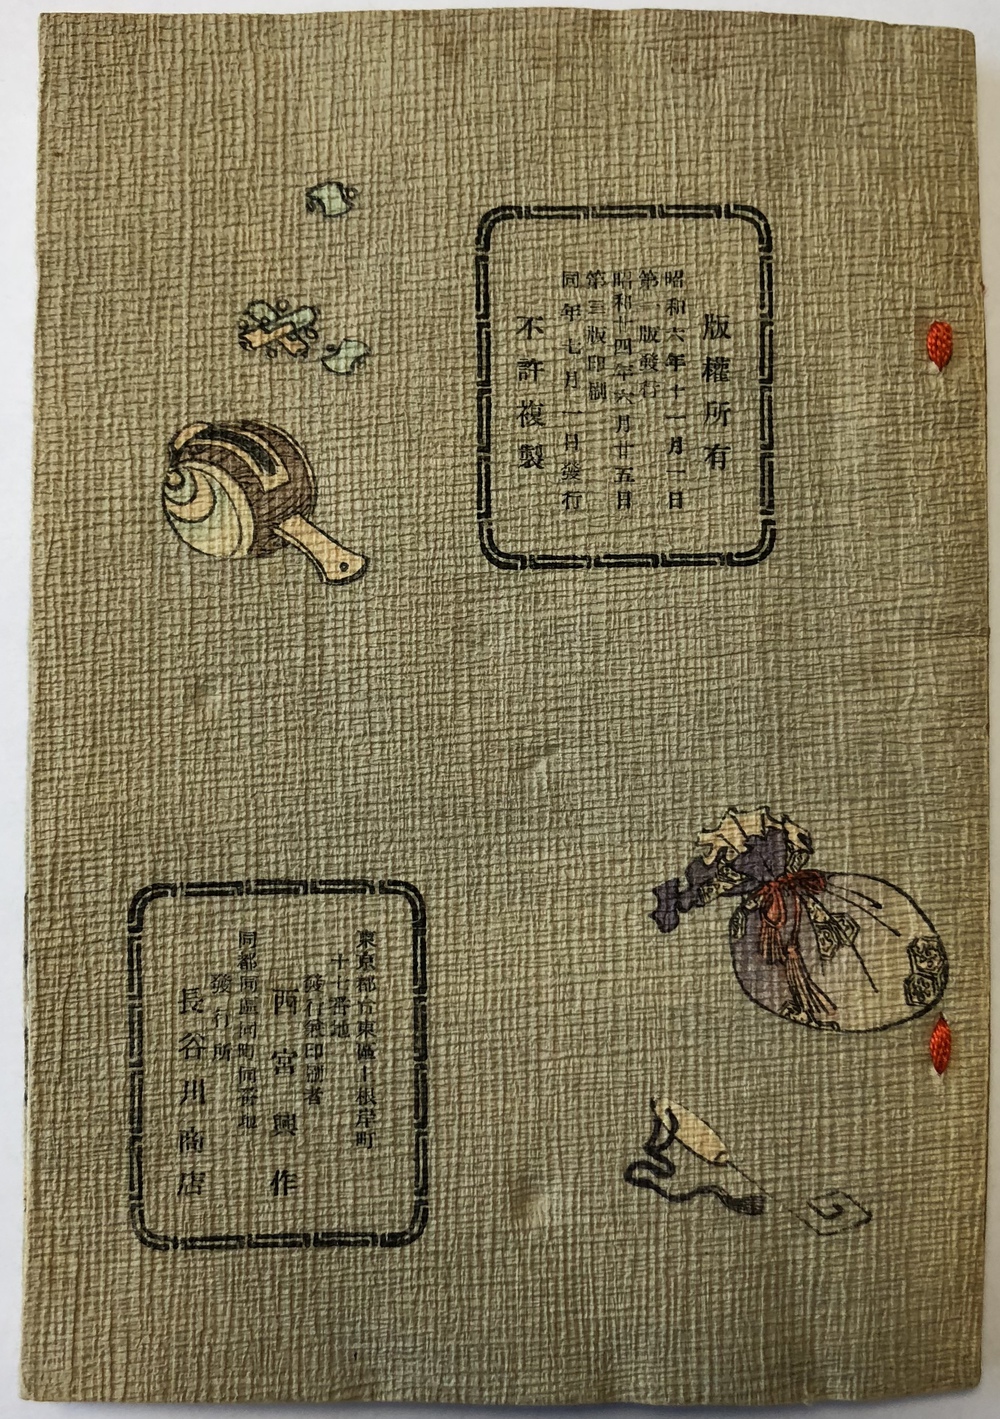 版權所有
昭和六年十一月一日
第一版發行
昭和十四年六月廿五日
第三版印刷
同年七月一日發行
不許複製
東京都台東區上根岸町
十七番地
發行兼印刷者
西宮興作
同都同區同町同番地
發行所
長谷川商店